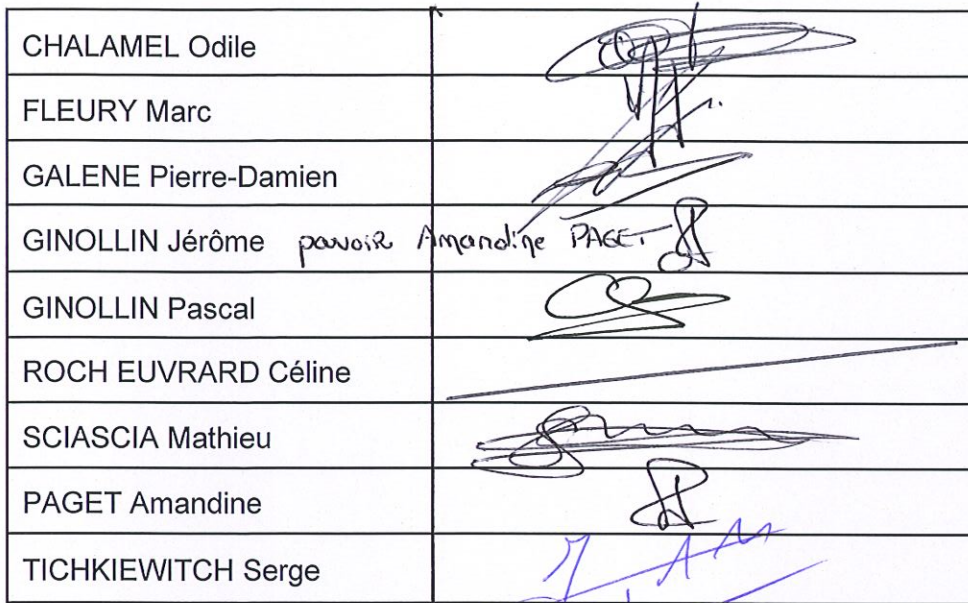 CHALAMEL Odile
FLEURY Marc
GALENE Pierre-Damien
GINOLLIN Jérôme pouvoir Amandine PAGET
GINOLLIN Pascal
ROCH EUVRARD Céline
SCIASCIA Mathieu
PAGET Amandine
TICHKIEWITCH Serge